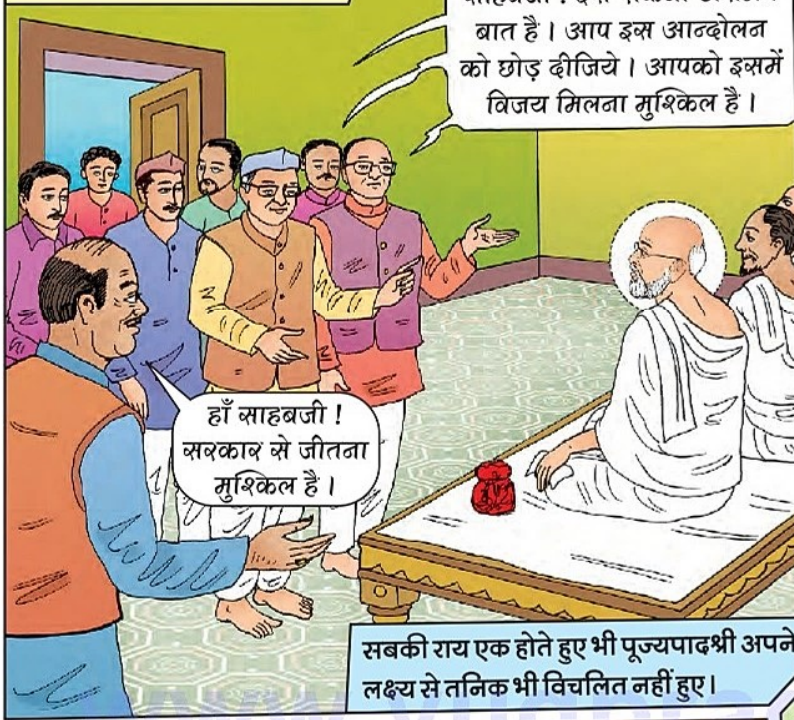 बात है। आप इस आन्दोलन
को छोड़ दीजिये। आपको इसमें
विजय मिलना मुश्किल है।
हाँ साहबजी !
सरकार से जीतना
मुश्किल है।
सबकी राय एक होते हुए भी पूज्यपादश्री अपने
लक्ष्य से तनिक भी विचलित नहीं हुए।